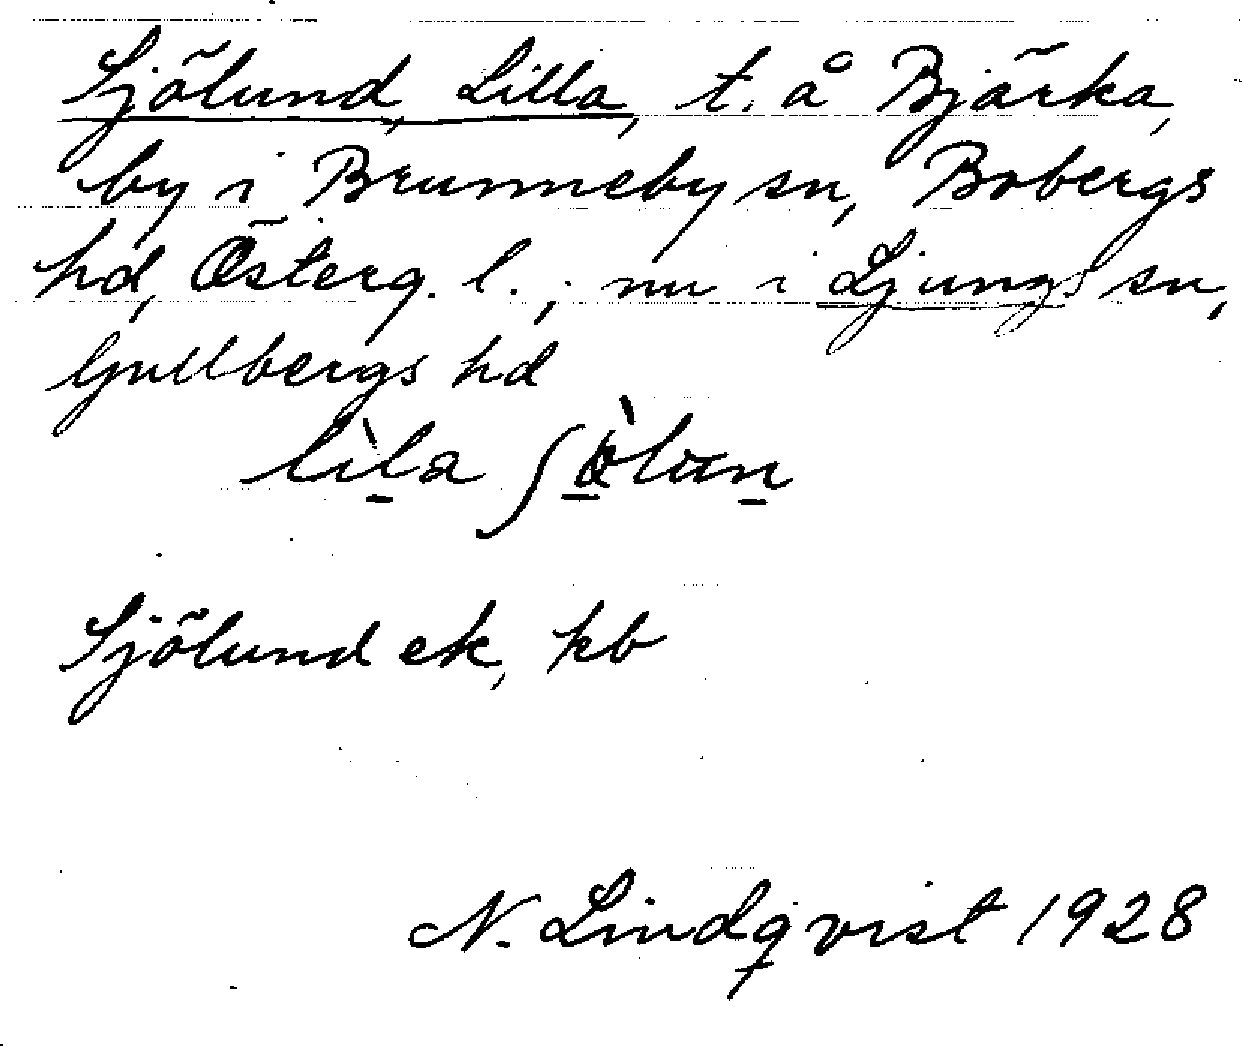 Sjölund, Lilla, t. å Bjärka,
by i Brunneby sn, Bobergs
hd, Österg. l.; nu i Ljungs sn,
Gullbergs hd
lìla ʃòlun
Sjölund ek, kb
N. Lindqvist 1928